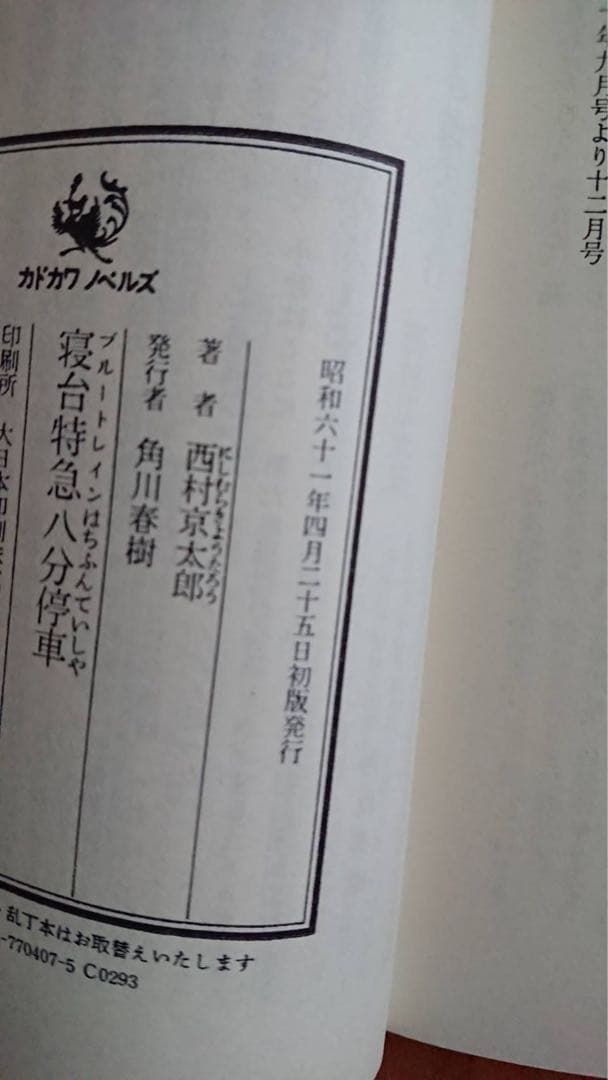 年九月号より十二月号
カドカワ ノベルズ
昭和六十一年四月二十五日初版発行
著者 西村京太郎
にしむらきょうたろう
発行者 角川春樹
ブルートレインはちふんていしゃ
寝台特急八分停車
印刷所 大日本印刷
乱丁本はお取替えいたします
-770407-5 C0293